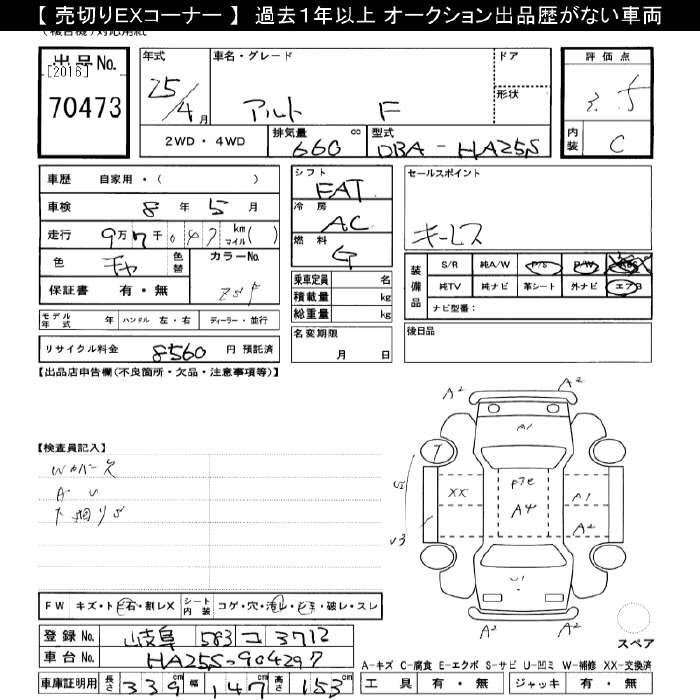 【 売切りEXコーナー 】 過去１年以上 オークション出品歴がない車両
出品No.
[2016]
70473
年式
25/4月
車名・グレード
アルト F
ドア
形状
評価点
3.5
内装
C
2WD・4WD
排気量 660 cc
型式 DBA-HA25S
車歴 自家用・( )
車検 8年 5月
走行 9万7千047 km マイル( )
色
色替
カラーNo.
Z5F
保証書 有・無
シフト FAT
冷房 AC
燃料 G
乗車定員 名
積載量 kg
総重量 kg
セールスポイント
キーレス
装備品
S/R 純A/W P/S P/W
純TV 純ナビ 革シート 外ナビ エアB
ナビ型番：
モデル年式 年 ハンドル 左・右 ディーラー・並行
リサイクル料金 8560 円 預託済
名変期限
月 日
後日品
【出品店申告欄(不良箇所・欠品・注意事項等)】
【検査員記入】
A U
下廻りS
A2 A2
A1
T
U2
XX
A4
A1
A2
U3
U1
A2 A2
スペア
FW キズ・トビ石・割レX
シート内装 コゲ・穴・汚レ・シミ・破レ・スレ
登録No. 岐阜 583 コ 3712
車台No. HA25S-904297
車庫証明用 長さ 339cm 幅 147cm 高さ 153cm
A-キズ C-腐食 E-エクボ S-サビ U-凹ミ W-補修 XX-交換済
工具 有・無 ジャッキ 有・無